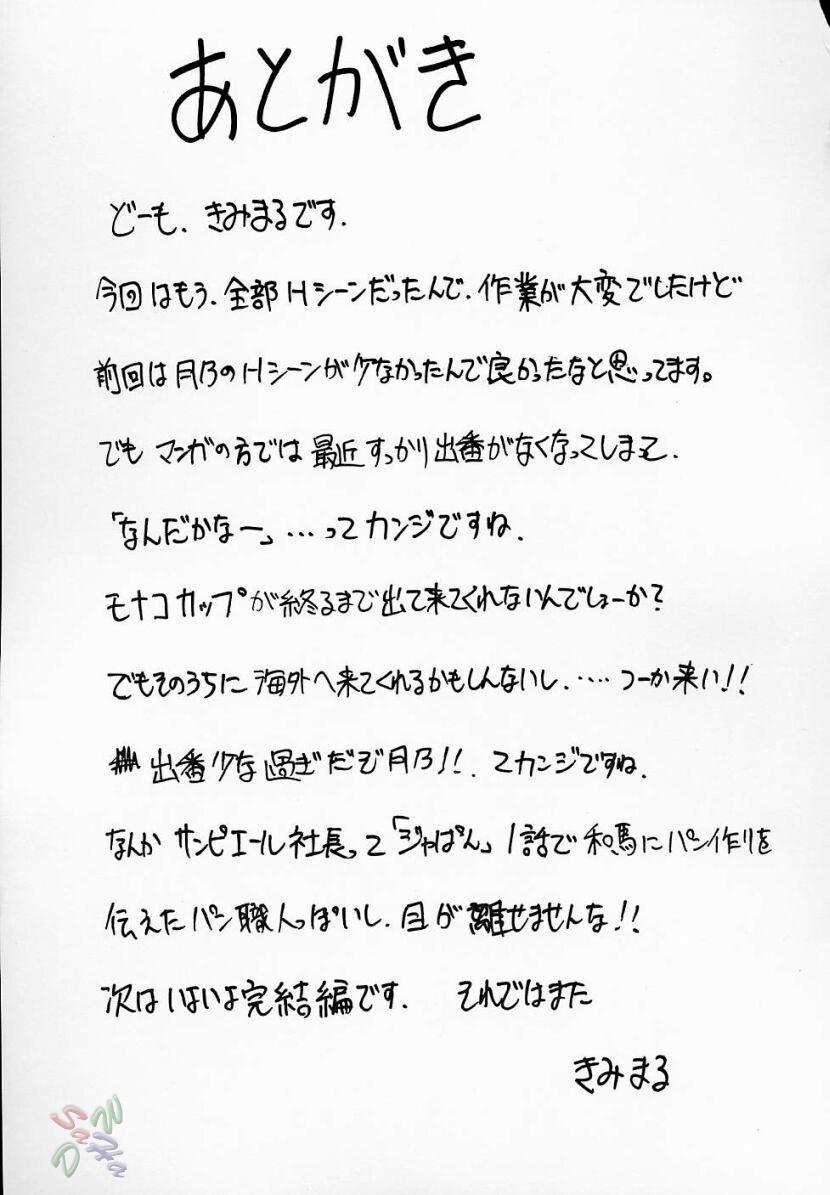 あとがき
どーも、きみまるです.
今回はもう、全部Hシーンだったんで、作業が大変でしたけど
前回は月乃のHシーンが少なかったんで良かったなと思ってます。
でも マンガの方では 最近 すっかり出番がなくなってしまって、
「なんだかなー」…ってカンジですね、
モナコカップが終るまで出て来てくれないんでしょーか?
でもそのうちに 海外へ来てくれるかもしんないし、‥‥つーか来い!!
出番少な過ぎだぞ月乃!!、てカンジですね、
なんか サンピエール社長って「ジャぱん」1話で 和馬にパン作りを
伝えたパン職人っぽいし、目が離せませんな!!
次はいよいよ完結編です. それではまた
きみまる
SaNHaD